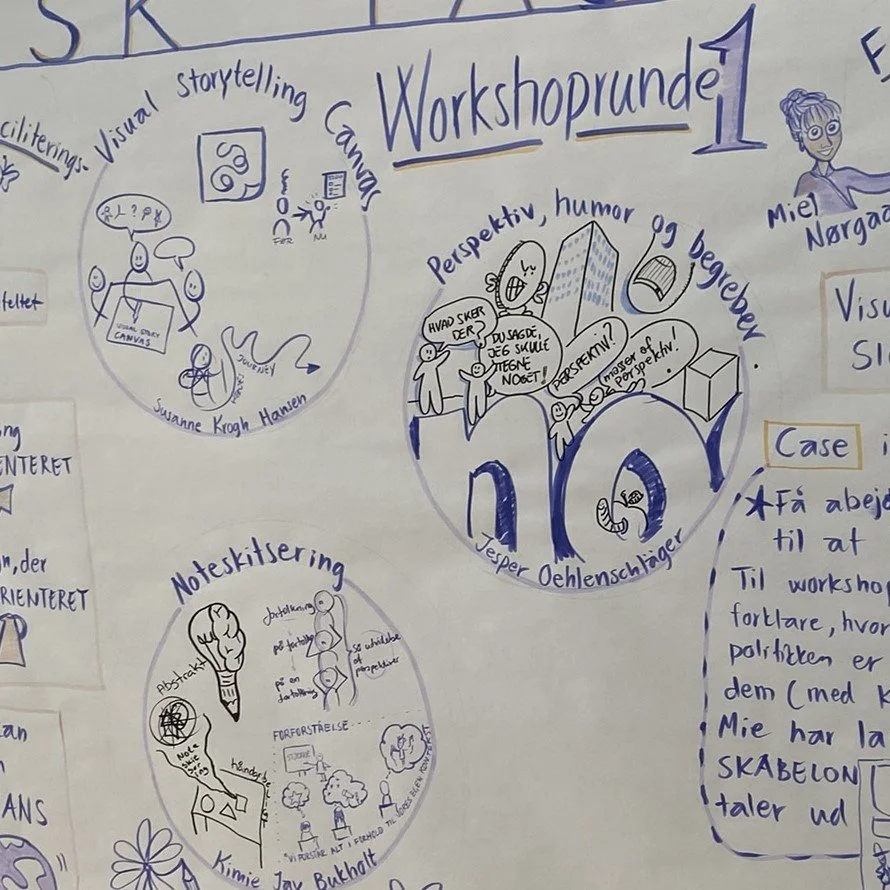 SK
Workshoprunde 1
ciliterings.
Visual Storytelling Canvas
? 
FØR NU
VISUAL STORY
CANVAS
JOURNEY
Susanne Krogh Hansen
Perspektiv, humor og begreber.
HVAD SKER
DER?
DU SAGDE,
JEG SKULLE
TEGNE
NOGET!
PERSPEKTIV?
(masser af
perspektiv!
no
Jesper Oehlenschläger
Miel
Nørgaa
feltet
Visu
Sli
ng
ENTERET
n, der
RIENTERET
an
ANS
Case i
Få abejd
til at
Til workshop
forklare, hvor
politikken er
dem (med K
Mie har la
SKABELON
taler ud
Noteskitsering
Abstrakt
Note
skit
ser
ing
fortolkning
på fortolk
på en
fortolkning
så udvidelse
af
perspektiver
FORFORSTÅELSE
"VI FORSTÅR ALT I FORHOLD TIL VORES EGEN KONTEKST
Kimie Jay Bukholt